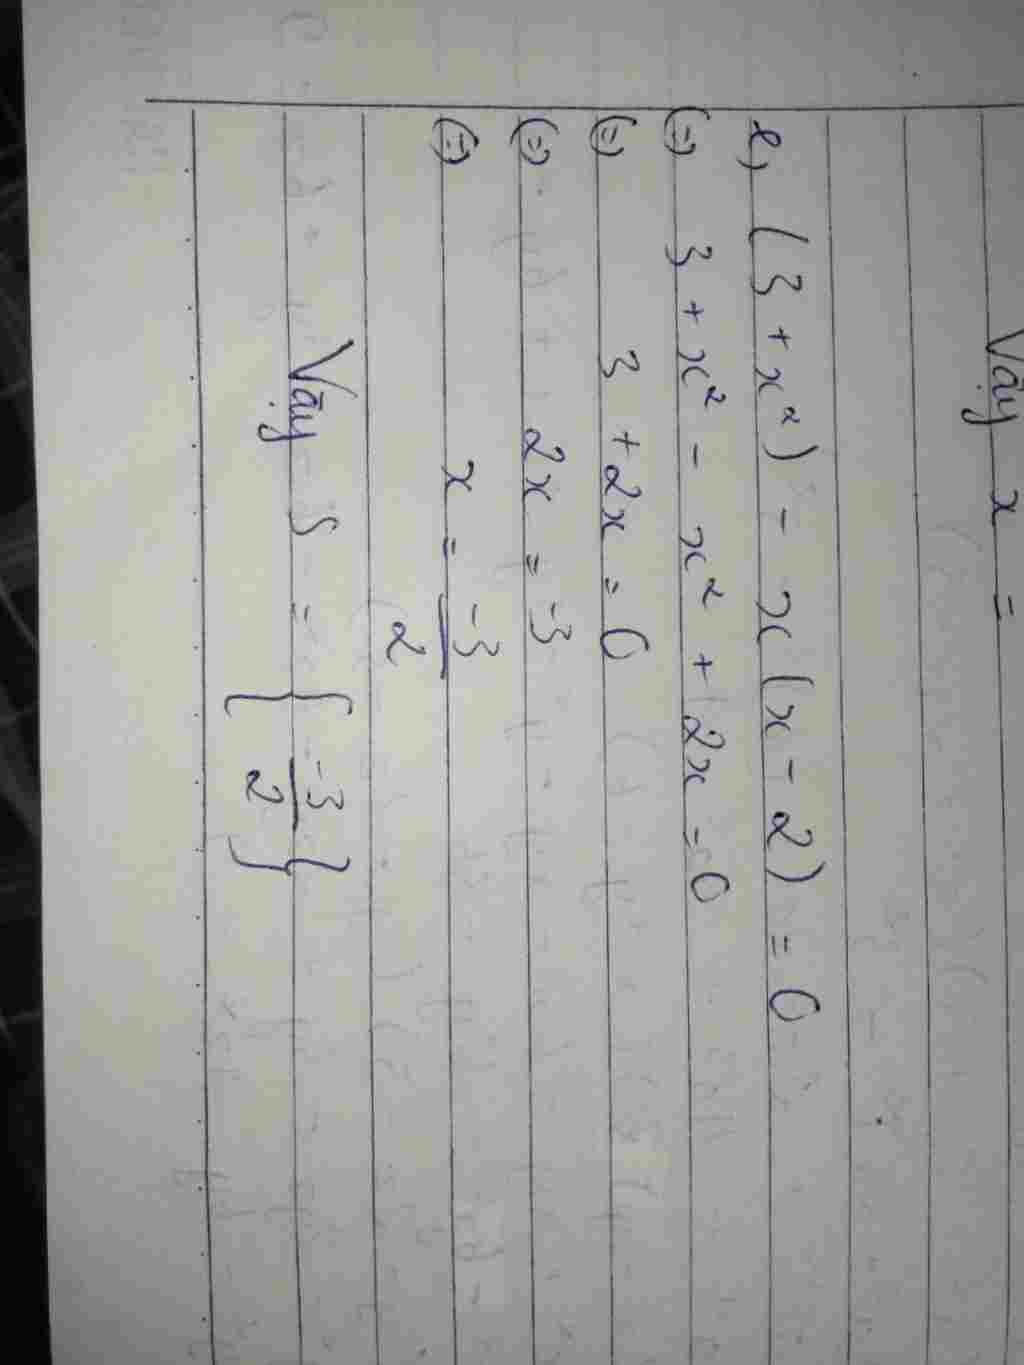 Vậy x =
e, (3 + x²) - x(x - 2) = 0
(=) 3 + x² - x² + 2x = 0
(=) 3 + 2x = 0
(=) 2x = -3
(=) x = -3/2
Vậy S = { -3/2 }